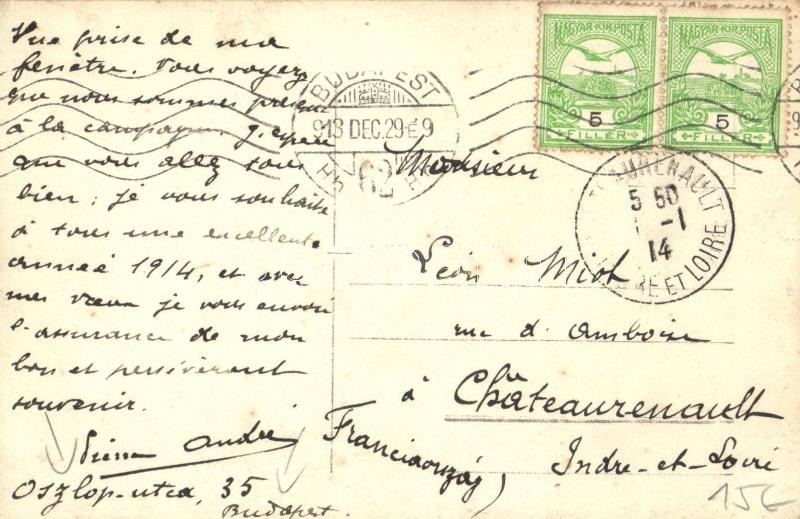 Vue prise de ma
fenêtre. Vous voyez
que nous sommes presque
à la campagne. J'espère
que vous allez tous
bien ; je vous souhaite
à tous une excellente
année 1914, et avec
mes vœux je vous envoie
l'assurance de mon
bon et persévérant
souvenir.
Pierre André
Oszlop-utca, 35
Budapest.
MAGYAR KIR. POSTA
5
FILLER
MAGYAR KIR. POSTA
5
FILLER
BUDAPEST
913 DEC. 29 É 9
62
CHATEAURENAULT
5 50
1 -1
14
INDRE ET LOIRE
Monsieur
Léon Miot
rue d'Amboise
à Châteaurenault
Indre-et-Loire
Franciaország
15€